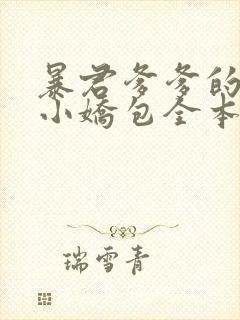 暴君爹爹的
小嬌包全本
瑞雪青